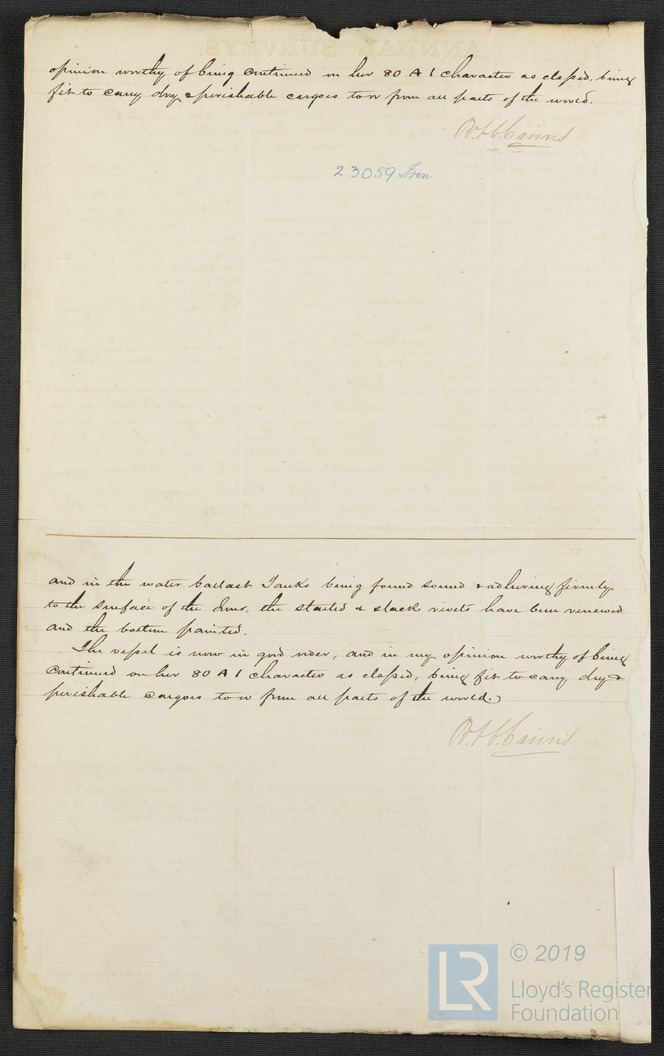 opinion worthy of being continued in her 80 A 1 character as classed, being
fit to carry dry & perishable cargoes to & from all parts of the world.
23059 Iron
and in the water ballast Tanks being found sound & adhering firmly
to the surface of the Iron, the started & slack rivets have been renewed
and the bottom painted.
The vessel is now in good order, and in my opinion worthy of being
continued on her 80 A 1 character as classed, being fit to carry dry &
perishable cargoes to & from all parts of the world.
LR
© 2019
Lloyd's Register
Foundation